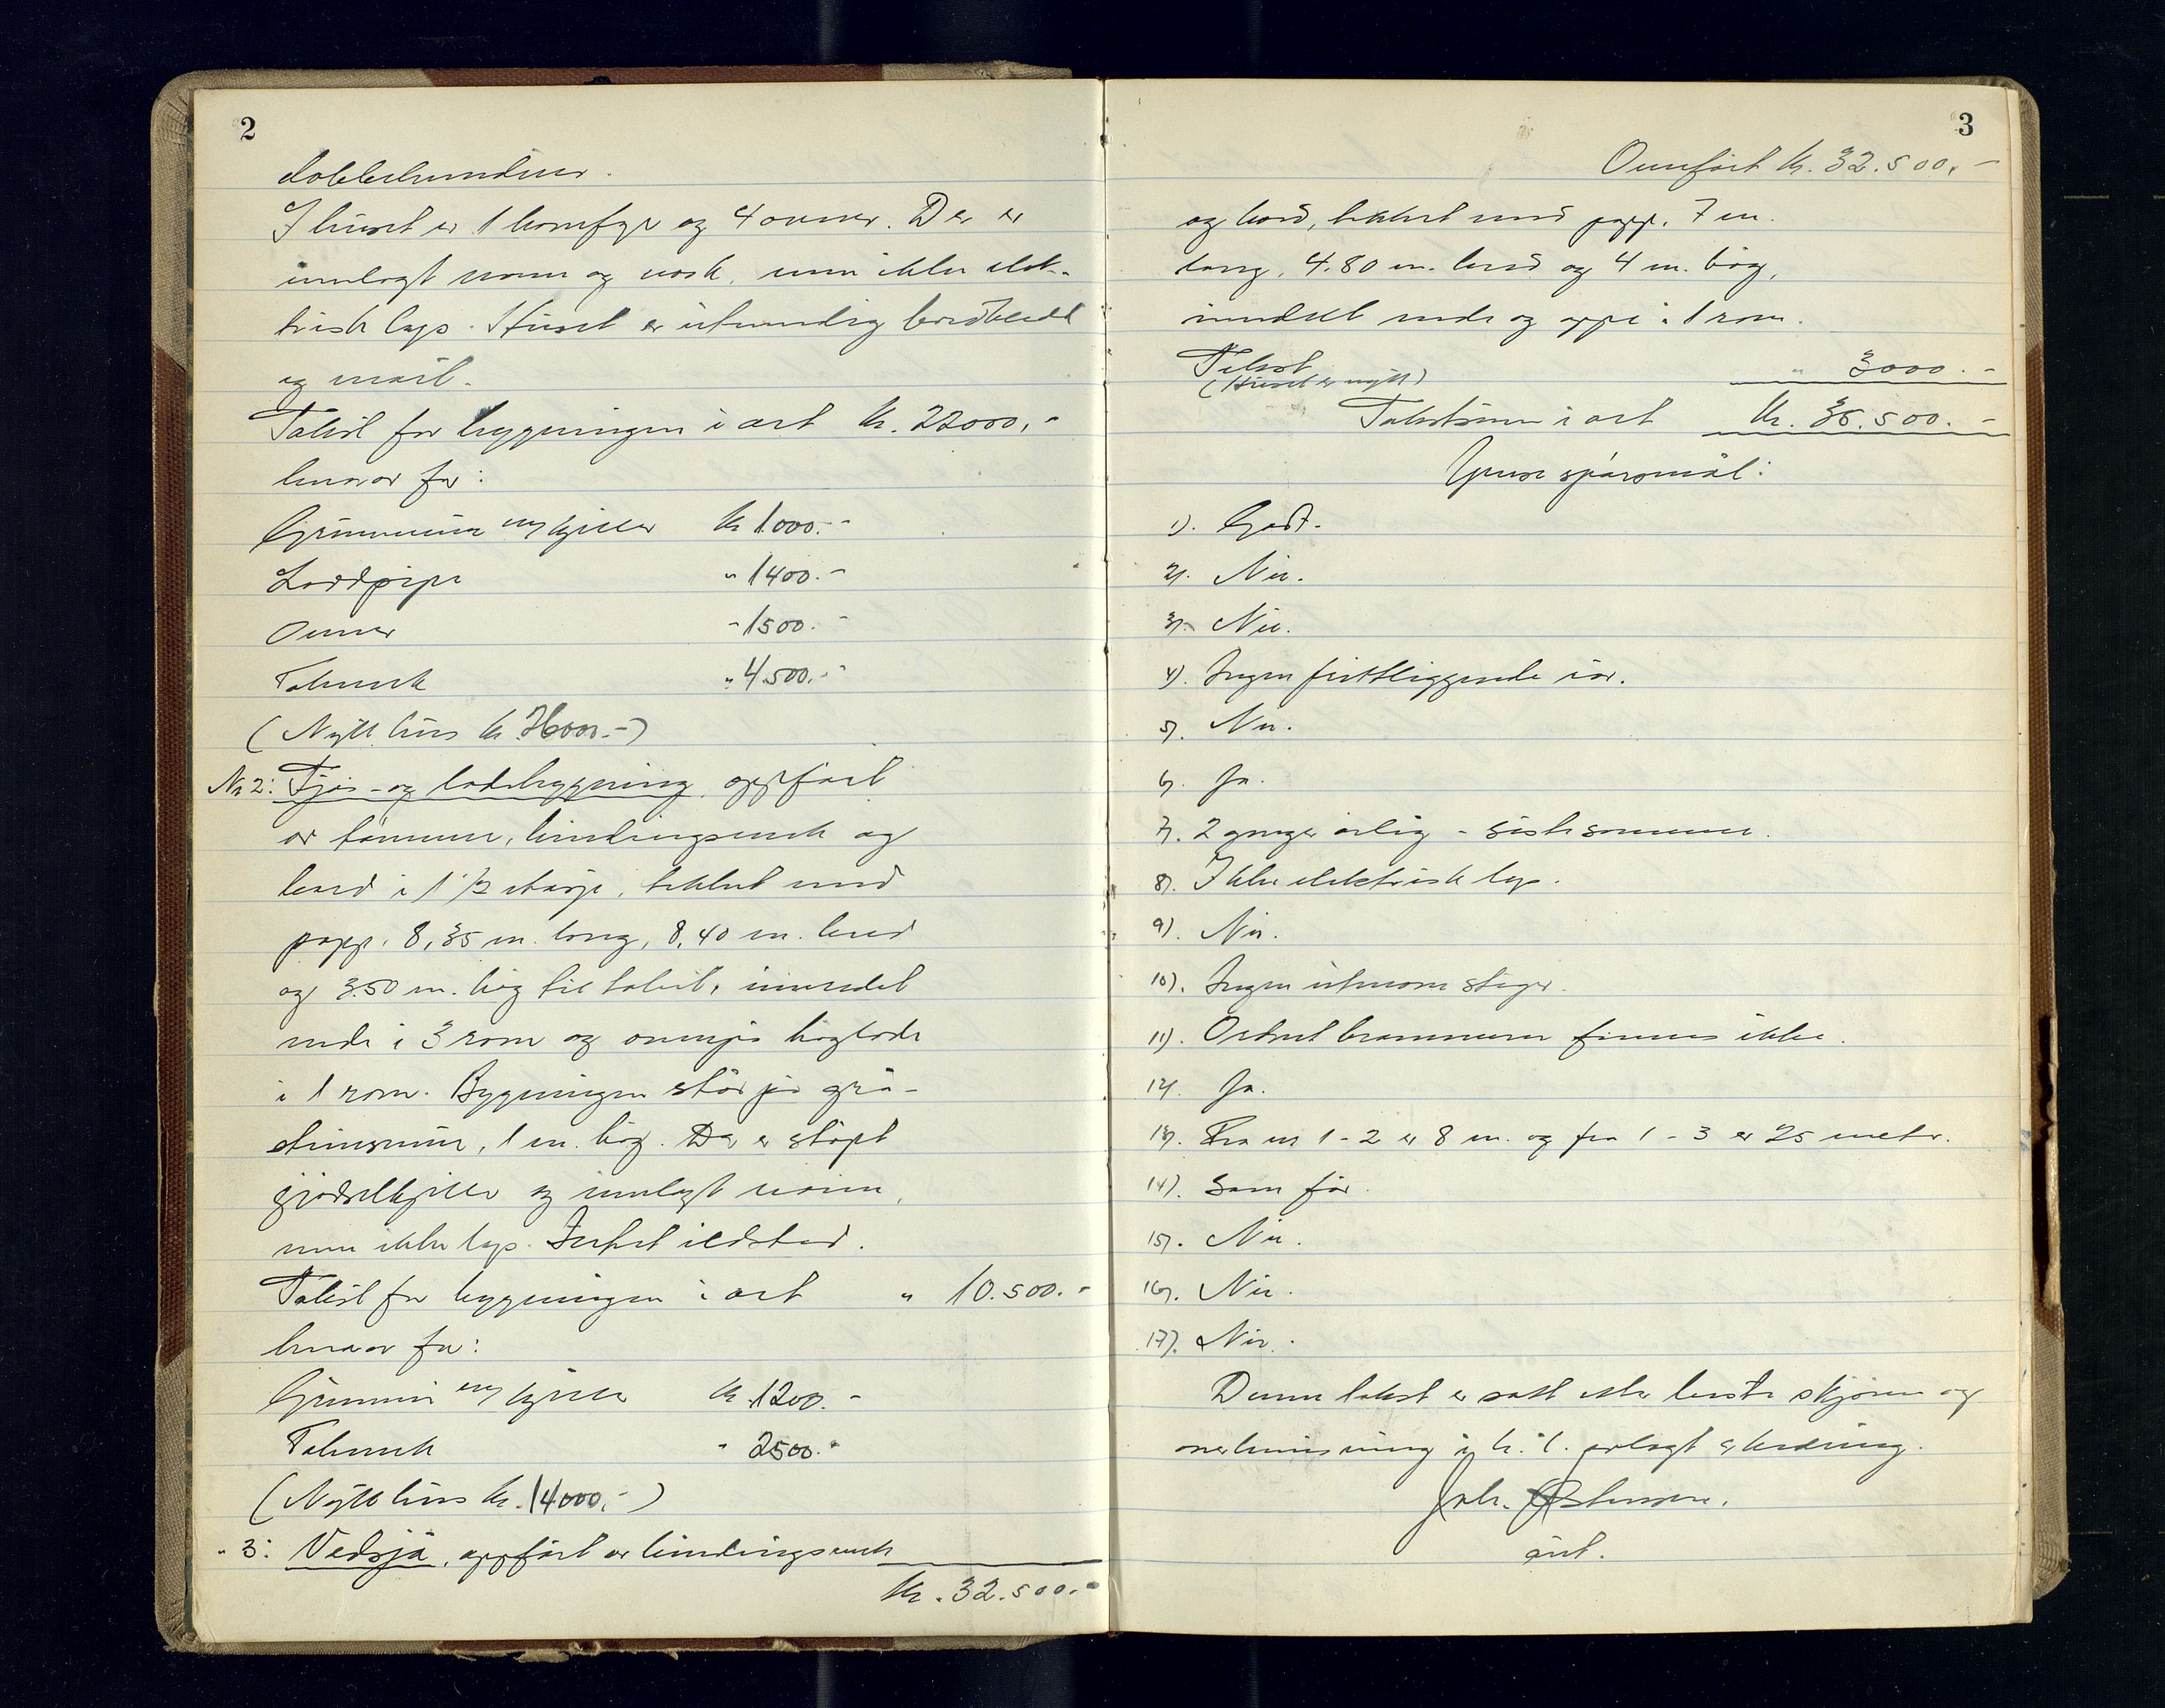 2
dobbelvinduer.
I huset er 1 komfyr og 4 ovner. Der er
innlagt vann og vask, men ikke elek-
trisk lys. Huset er utvendig bordkledt
og malt.
Takst for bygningen i alt kr. 22000,-
herav for:
Grunnmur m/kjeller kr 1000.-
Loddpipe " 1400.-
Ovner " 1500.-
Takverk " 4.500.-
(Nytt hus kr. 26000.-)
Nr 2: Fjøs- og ladebygning, oppført
av tømmer, bindingsverk og
bord i 1 1/2 etasje, tekket med
papp. 8,35 m. lang, 8,40 m. bred
og 3.50 m. høg til takst, inndelt
nede i 3 rom og ovenpå høglade
i 1 rom. Bygningen står på grå-
steinsmur, 1 m. høg. Der er støpt
gjødselkjeller og innlagt vann,
men ikke lys. Intet ildsted.
Takst for bygningen i alt " 10.500.-
herav for:
Grunnmur m/kjeller kr. 1200.-
Takverk " 2500.-
(Nytt hus kr. 14000,-)
" 3: Vedsjå, oppført av bindingsverk
Kr. 32.500.-
3
Overført kr. 32.500.-
og bord, tekket med papp. 7 m.
lang, 4.80 m. bred og 4 m. høg,
inndelt nede og oppe i 1 rom.
Takst " 3000.-
(Huset er nytt)
Takstsum i alt Kr. 35.500.-
Ymse spørsmål:
1). Godt.
2). Nei.
3). Nei.
4). Ingen frittliggende rør.
5). Nei.
6). Ja.
7). 2 ganger årlig - siste sommer.
8). Ikke elektrisk lys.
9). Nei.
10). Ingen utenom stiger.
11). Ordnet brannvern finnes ikke.
12). Ja.
13). Fra nr 1 - 2 er 8 m. og fra 1 - 3 er 25 meter.
14). Som før.
15). Nei.
16). Nei.
17). Nei.
Denne takst er satt etter beste skjønn og
overbevisning i h. t. avlagt erklæring.
Joh.